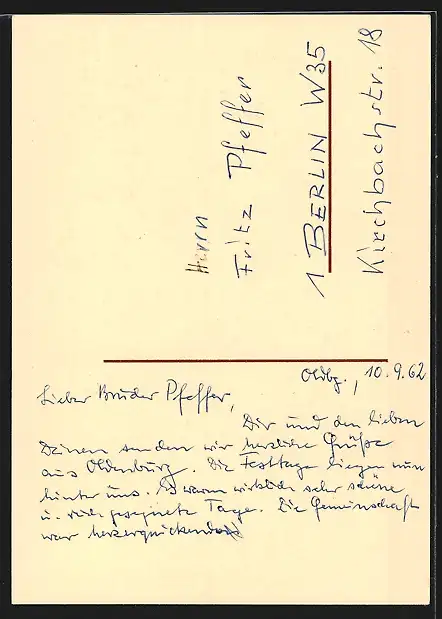 Herrn
Fritz Pfeffer
1 BERLIN W35
Kirchbachstr. 18
Oldbg., 10.9.62
Lieber Bruder Pfeffer,
Dir und den lieben
Deinen senden wir herzliche Grüße
aus Oldenburg. Die Festtage liegen nun
hinter uns. Es waren wirklich sehr schöne
u. reich gesegnete Tage. Die Gemeinschaft
war herzerquickend